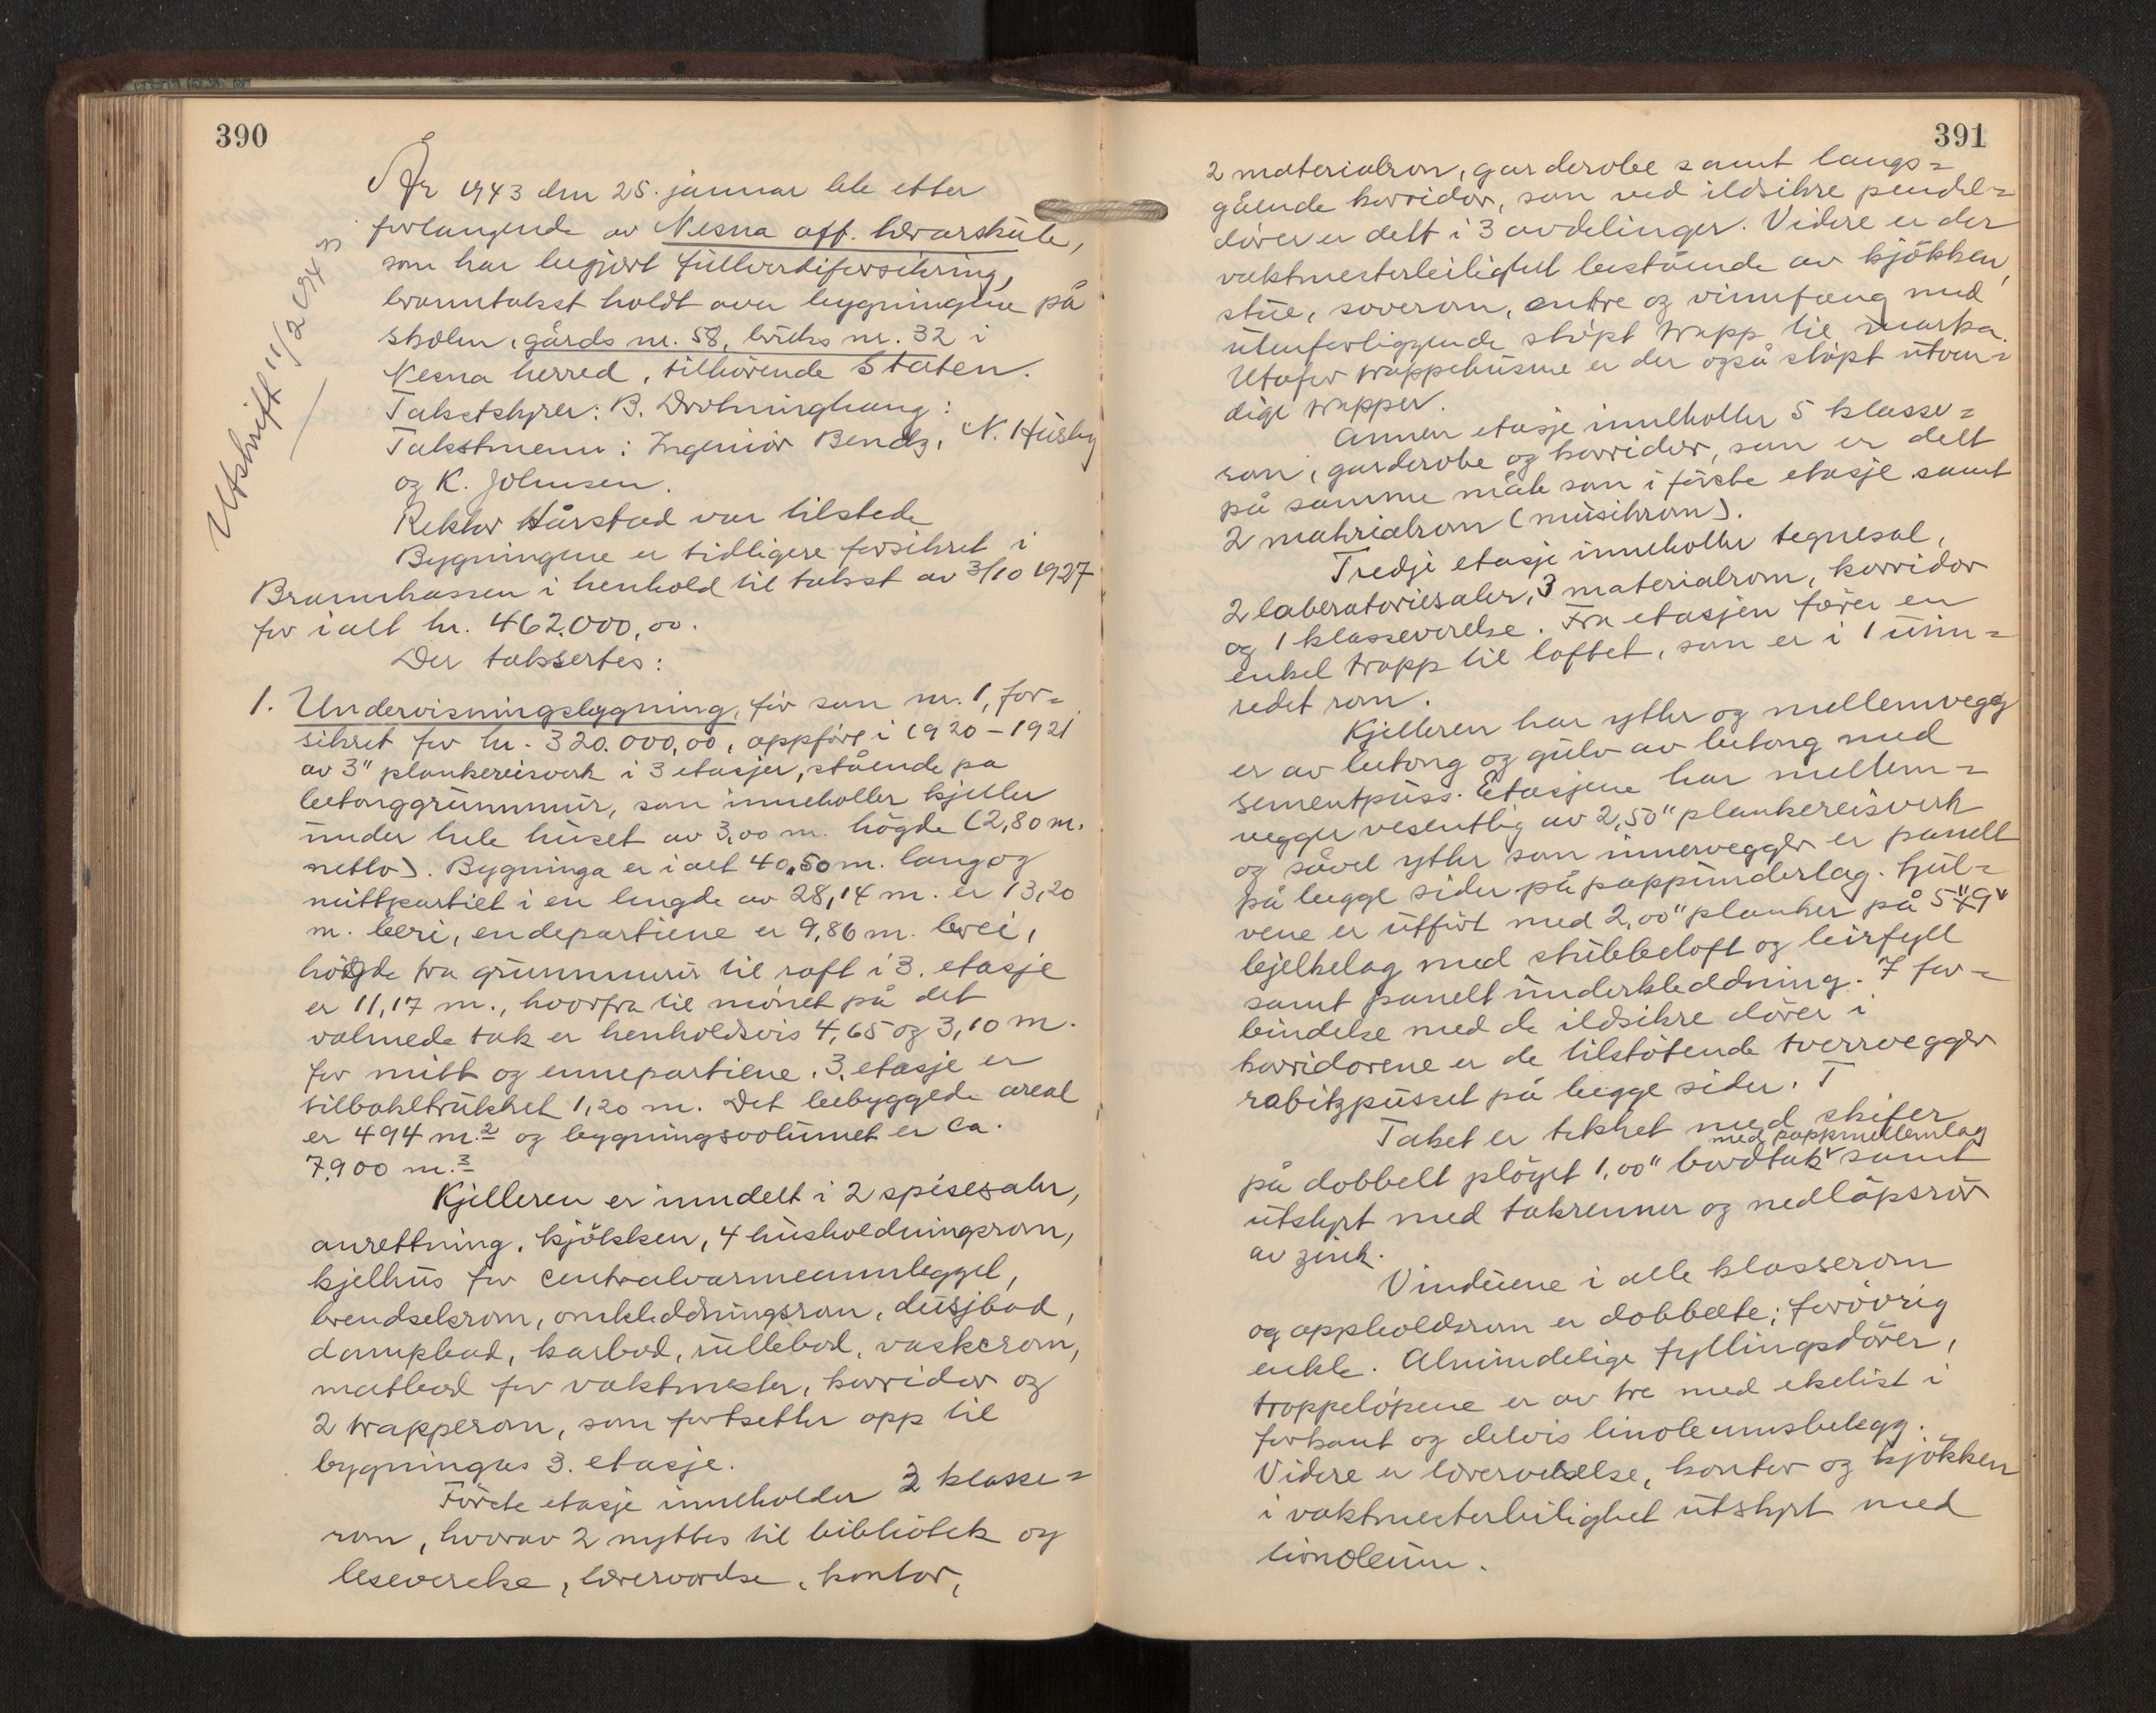 390
Utskrift 11/2 1943
År 1943 den 25. januar ble etter
forlangende av Nesna off. lærarskule,
som har begjært fullverdiforsikring,
branntakst holdt over bygningene på
skolen, gårds nr. 58, bruks nr. 32 i
Nesna herred, tilhörende Staten.
Takststyrer: B. Drotninghaug:
Takstmenn: Ingeniör Bendz, N. Husby
og K. Johnsen.
Rektor Hårstad var tilstede
Bygningene er tidligere forsikret i
Brannkassen i henhold til takst av 3/10 1927
for i alt kr. 462.000,00.
Der takssertes:
1. Undervisningsbygning, för som nr. 1, for=
sikret for kr. 320.000,00, oppfört i 1920 - 1921
av 3" plankereisverk i 3 etasjer, stående på
betonggrunnmur, som inneholler kjeller
under hele huset av 3,00 m. högde (2,80 m.
netto). Bygninga er i alt 40,50 m. lang og
mittpartiet i en lengde av 28,14 m. er 13,20
m. brei, endepartiene er 9,86 m. brei,
högde fra grunnmur til raft i 3. etasje
er 11,17 m., hvorfra til mönet på det
valmede tak er henholdsvis 4,65 og 3,10 m.
for mitt og ennepartiene. 3. etasje er
tilbaketrukket 1,20 m. Det bebyggede areal
er 494 m.² og bygningsvolumet er ca.
7.900 m.³
Kjelleren er inndelt i 2 spisesaler,
anrettning, kjökken, 4 husholdningsrom,
kjelhus for centralvarmeannlegget,
brendselsrom, omkleddningsrom, dusjbad,
dampbad, karbad, rullebod, vaskerom,
matbod for vaktmester, korridor og
2 trapperom, som fortsetter opp til
bygningas 3. etasje.
Förste etasje inneholder 3 klasse=
rom, hvorav 2 nyttes til bibliotek og
leseverelse, lærerværelse, kontor,
391
2 materialrom, garderobe samt langs=
gående korridor, som ved ildsikre pendel=
dörer er delt i 3 avdelinger. Videre er der
vaktmesterleilighet bestående av kjökken,
stue, soverom, entre og vinnfang med
utenforliggende stöpt trapp til marka.
Utafor trappehusene er der også stöpt utven=
dige trapper.
Annen etasje inneholler 5 klasse=
rom, garderobe og korridor, som er delt
på samme måte som i förste etasje samt
2 matrialrom (musikrom).
Tredje etasje inneholler tegnesal,
2 laboratoriesaler, 3 materialrom, korridor
og 1 klasseverelse. Fra etasjen förer en
enkel trapp til loftet, som er i 1 uinn=
redet rom.
Kjelleren har ytter og mellemvegg
er av betong og gulv av betong med
sementpuss. Etasjene har mellem=
vegger vesentlig av 2,50" plankereisverk
og såvel ytter som innervegger er panelt
på begge sider på pappunderlag. Gul=
vene er utfört med 2,00" planker på 5"x9"
bjelkelag med stubbeloft og leirfyll
samt panelt underkleddning. I for=
bindelse med de ildsikre dörer i
korridorene er de tilstötende tverrvegger
rabitzpusset på begge sider. T
Taket er tekket med skifer
med pappmellemlag
på dobbelt plöyet 1,00" bordtak samt
utstyrt med takrenner og nedlöpsrör
av zink.
Vinduene i alle klasserom
og oppholdsrom er dobbelte; forövrig
enkle. Almindelige fyllingsdörer,
trappelöpene er av tre med ekelist i
forkant og delvis linoleumsbelegg.
Videre er lærerværelse, kontor og kjökken
i vaktmesterleilighet utstyrt med
linoleum.